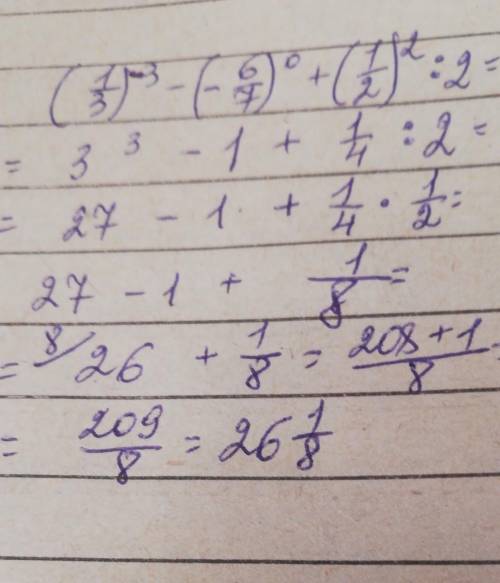 (1/3)^-3 - (-6/7)^0 + (1/2)^2 : 2 =
= 3^3 - 1 + 1/4 : 2 =
= 27 - 1 + 1/4 · 1/2 =
27 - 1 + 1/8 =
= 8/ 26 + 1/8 = (208+1)/8 =
= 209/8 = 26 1/8